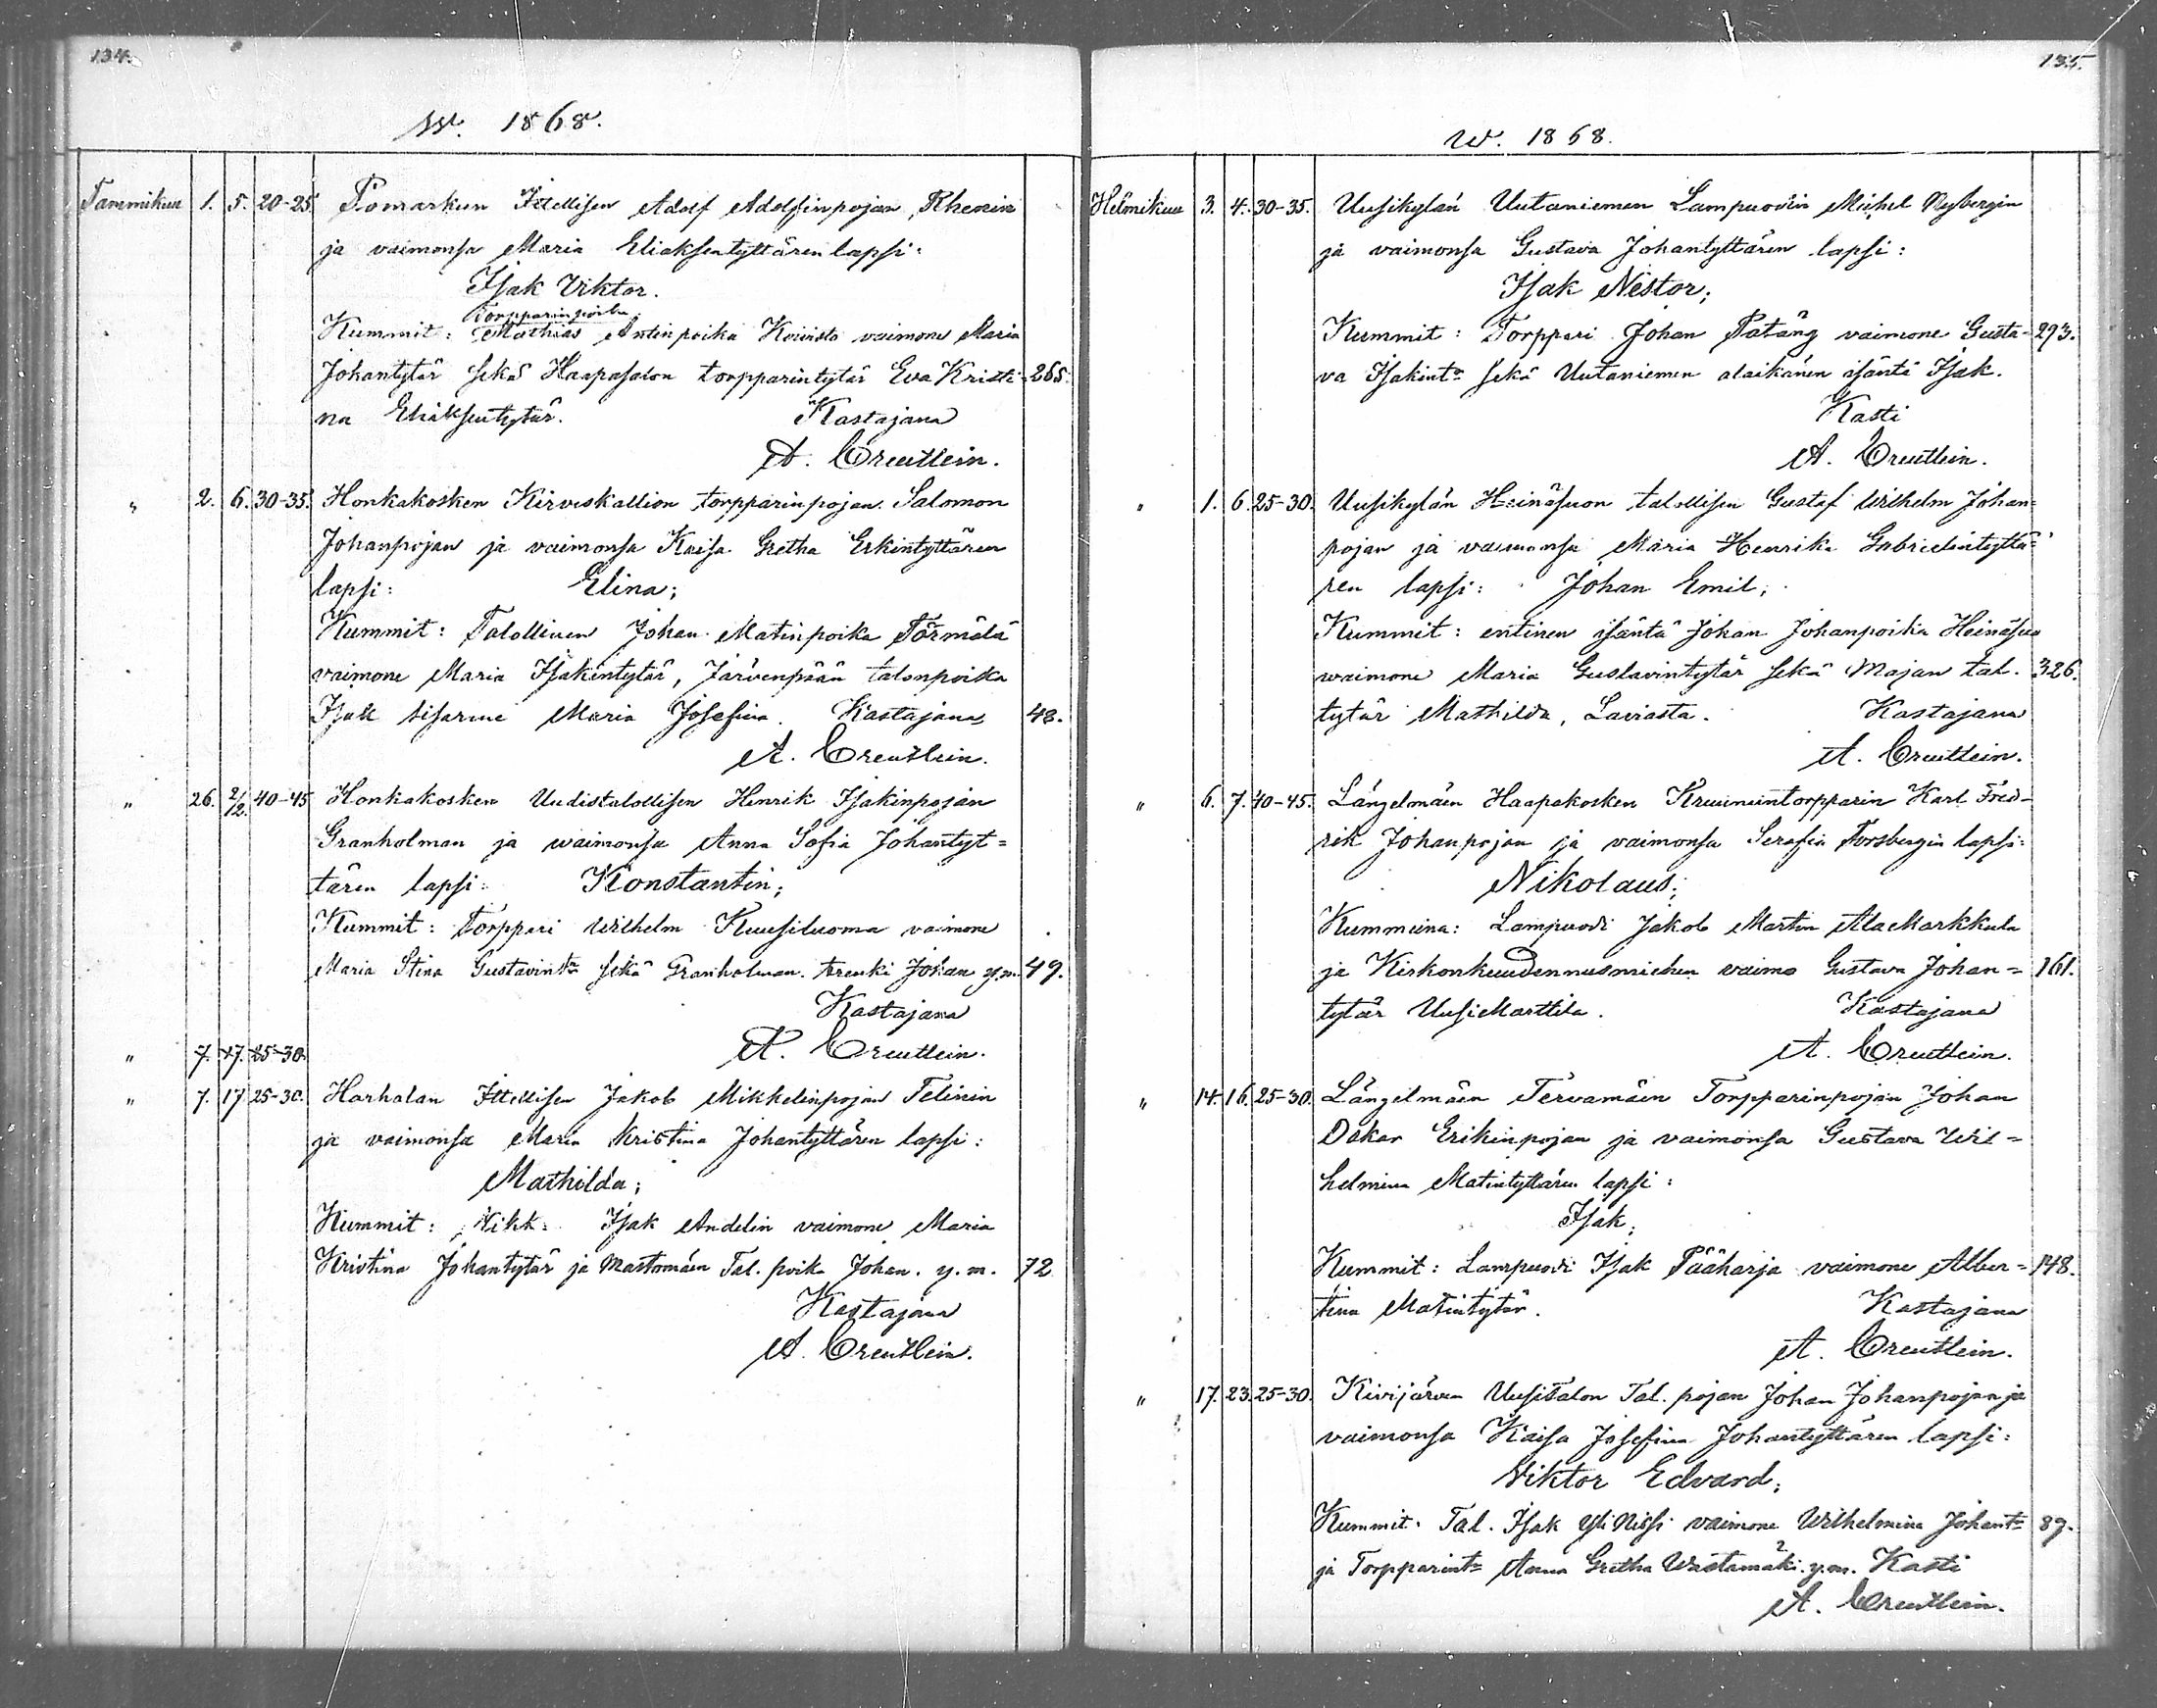 134.
W. 1868.
Tammikuu 1. 5. 20-25. Pomarkun Itellisen Adolf Adolfinpojan Rhenin
ja vaimonsa Maria Eliaksentyttären lapsi:
Isak Viktor.
Torpparinpoika
Kummit: Mathias Antinpoika Koivisto vaimone Maria
Johantytär sekä Haapasalon torpparintytär Eva Kristi- 265.
na Eliaksentytär. Kastajana
A. Creutlein.
" 2. 6. 30-35. Honkakosken Kirveskallion torpparinpojan Salomon
Johanpojan ja vaimonsa Kaisa Gretha Erkintyttären
lapsi: Elina;
Kummit: Talollinen Johan Matinpoika Törmälä
vaimone Maria Isakintytär, Järvenpään talonpoika
Isak sisarine Maria Josefina. Kastajana 48.
A. Creutlein.
" 26. 2/12. 40-45 Honkakosken Uudistalollisen Henrik Isakinpojan
Granholman ja waimonsa Anna Sofia Johantyt=
tären lapsi: Konstantin;
Kummit: Torppari Wilhelm Kuusiluoma vaimone
Maria Stina Gustavint:r sekä Granholman trenki Johan y.m. 49.
Kastajana
A. Creutlein.
" 7. 17. 25-30.
" 7. 17 25-30. Harhalan Itellisen Jakob Mikkelinpojan Telinin
ja vaimonsa Maria Kristina Johantyttären lapsi:
Mathilda;
Kummit: Nikk. Isak Andelin vaimone Maria
Kristina Johantytär ja Mastomäen Tal. poika Johan. y. m. 72
Kastajana
A. Creutlein.
135.
W. 1868.
Helmikuu 3. 4. 30-35. Uusikylän Uutaniemen Lampuodin Michel Nybergin
ja vaimonsa Gustava Johantyttären lapsi:
Isak Nestor;
Kummit: Torppari Johan Patäng vaimone Gusta- 293.
va Isakint:r sekä Uutaniemen alaikänen isäntä Isak.
Kasti
A. Creutlein.
" 1. 6. 25-30. Uusikylän Heinäsuon talollisen Gustaf Wilhelm Johan=
pojan ja vaimonsa Maria Henrika Gabrielintyttä=
ren lapsi: Johan Emil;
Kummit: entinen isäntä Johan Johanpoika Heinäsuo
waimone Maria Gustavintytär sekä Majan tal. 326.
tytär Mathilda, Laviasta. Kastajana
A. Creutlein.
" 6. 7. 40-45. Längelmäen Haapakosken Kruununtorpparin Karl Fred-
rik Johanpojan ja vaimonsa Serafia Forsbergin lapsi:
Nikolaus;
Kummina: Lampuodi Jakob Martin AlaMarkkula
ja Kirkonkuudennusmiehen vaimo Gustava Johan= 161.
tytär UusiMarttila. Kastajana
A. Creutlein.
" 14. 16. 25-30. Längelmäen Tervamäen Torpparinpojan Johan
Oskar Erikinpojan ja vaimonsa Gustava Wil=
helmina Matintyttären lapsi:
Isak;
Kummit: Lampuodi Isak Pääharja vaimone Alber= 148.
tina Matintytär. Kastajana
A. Creutlein.
" 17. 23. 25-30. Kivijärven UusiTalon Tal. pojan Johan Johanpojan ja
vaimonsa Kaisa Josefina Johantyttären lapsi:
Viktor Edvard;
Kummit: Tal. Isak YliNissi vaimone Wilhelmina Johant:r 89.
ja Torpparint:r Anna Gretha Wästämäki y.m. Kasti
A. Creutlein.